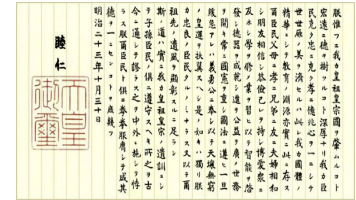 朕惟フニ我カ皇祖皇宗國ヲ肇ムルコト
宏遠ニ德ヲ樹ツルコト深厚ナリ我カ臣
民克ク忠ニ克ク孝ニ億兆心ヲ一ニシテ
世世厥ノ美ヲ濟セルハ此レ我カ國體ノ
精華ニシテ敎育ノ淵源亦實ニ此ニ存ス
爾臣民父母ニ孝ニ兄弟ニ友ニ夫婦相和
シ朋友相信シ恭儉己レヲ持シ博愛衆ニ
及ホシ學ヲ修メ業ヲ習ヒ以テ智能ヲ啓
發シ德器ヲ成就シ進テ公益ヲ廣メ世務
ヲ開キ常ニ國憲ヲ重シ國法ニ遵ヒ一旦
緩急アレハ義勇公ニ奉シ以テ天壤無窮
ノ皇運ヲ扶翼スヘシ是ノ如キハ獨リ朕
カ忠良ノ臣民タルノミナラス又以テ爾
祖先ノ遺風ヲ顯彰スルニ足ラン
斯ノ道ハ實ニ我カ皇祖皇宗ノ遺訓ニシ
テ子孫臣民ノ俱ニ遵守スヘキ所之ヲ古
今ニ通シテ謬ラス之ヲ中外ニ施シテ悖
ラス朕爾臣民ト俱ニ拳拳服膺シテ咸其
德ヲ一ニセンコトヲ庶幾フ
明治二十三年十月三十日
睦仁
天皇
御璽